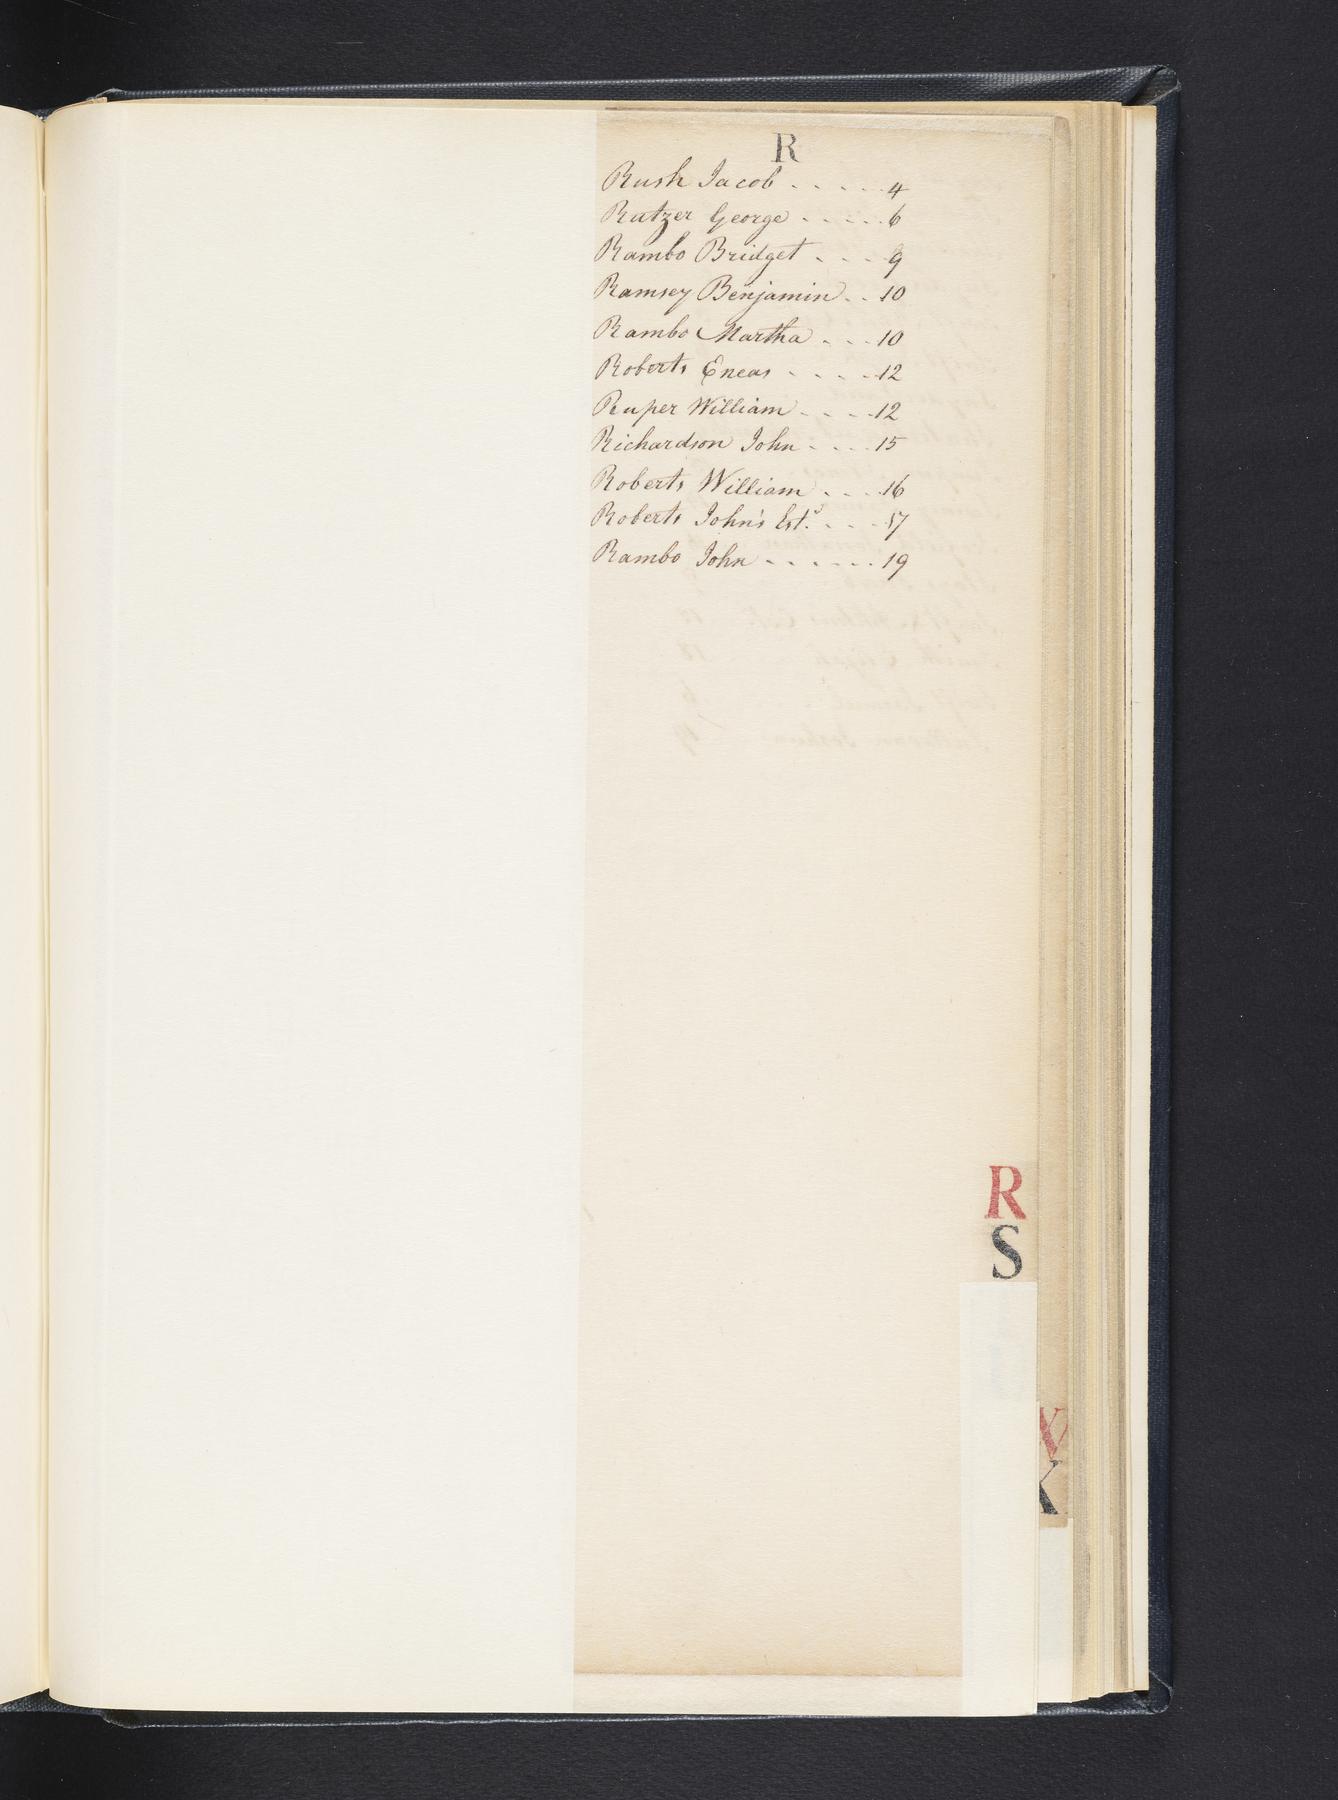 R
Rush Jacob . . . . . 4
Rutzer George . . . . . 6
Rambo Bridget . . . 9
Ramsey Benjamin . . 10
Rambo Martha . . . 10
Roberts Eneas . . . . 12
Ruper William . . . . 12
Richardson John . . . . 15
Roberts William . . . 16
Roberts John's Est. . . . 17
Rambo John . . . . . . 19
R
S